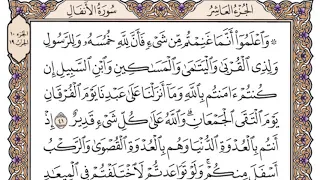 الجزء العاشر
سورة الأنفال
۞ وَٱعۡلَمُوٓاْ أَنَّمَا غَنِمۡتُم مِّن شَيۡءٖ فَأَنَّ لِلَّهِ خُمُسَهُۥ وَلِلرَّسُولِ
وَلِذِي ٱلۡقُرۡبَىٰ وَٱلۡيَتَٰمَىٰ وَٱلۡمَسَٰكِينِ وَٱبۡنِ ٱلسَّبِيلِ إِن
كُنتُمۡ ءَامَنتُم بِٱللَّهِ وَمَآ أَنزَلۡنَا عَلَىٰ عَبۡدِنَا يَوۡمَ ٱلۡفُرۡقَانِ
يَوۡمَ ٱلۡتَقَى ٱلۡجَمۡعَانِۗ وَٱللَّهُ عَلَىٰ كُلِّ شَيۡءٖ قَدِيرٌ ٤١ إِذۡ
أَنتُم بِٱلۡعُدۡوَةِ ٱلدُّنۡيَا وَهُم بِٱلۡعُدۡوَةِ ٱلۡقُصۡوَىٰ وَٱلرَّكۡبُ
أَسۡفَلَ مِنكُمۡۚ وَلَوۡ تَوَاعَدتُّمۡ لَٱخۡتَلَفۡتُمۡ فِي ٱلۡمِيعَٰدِ